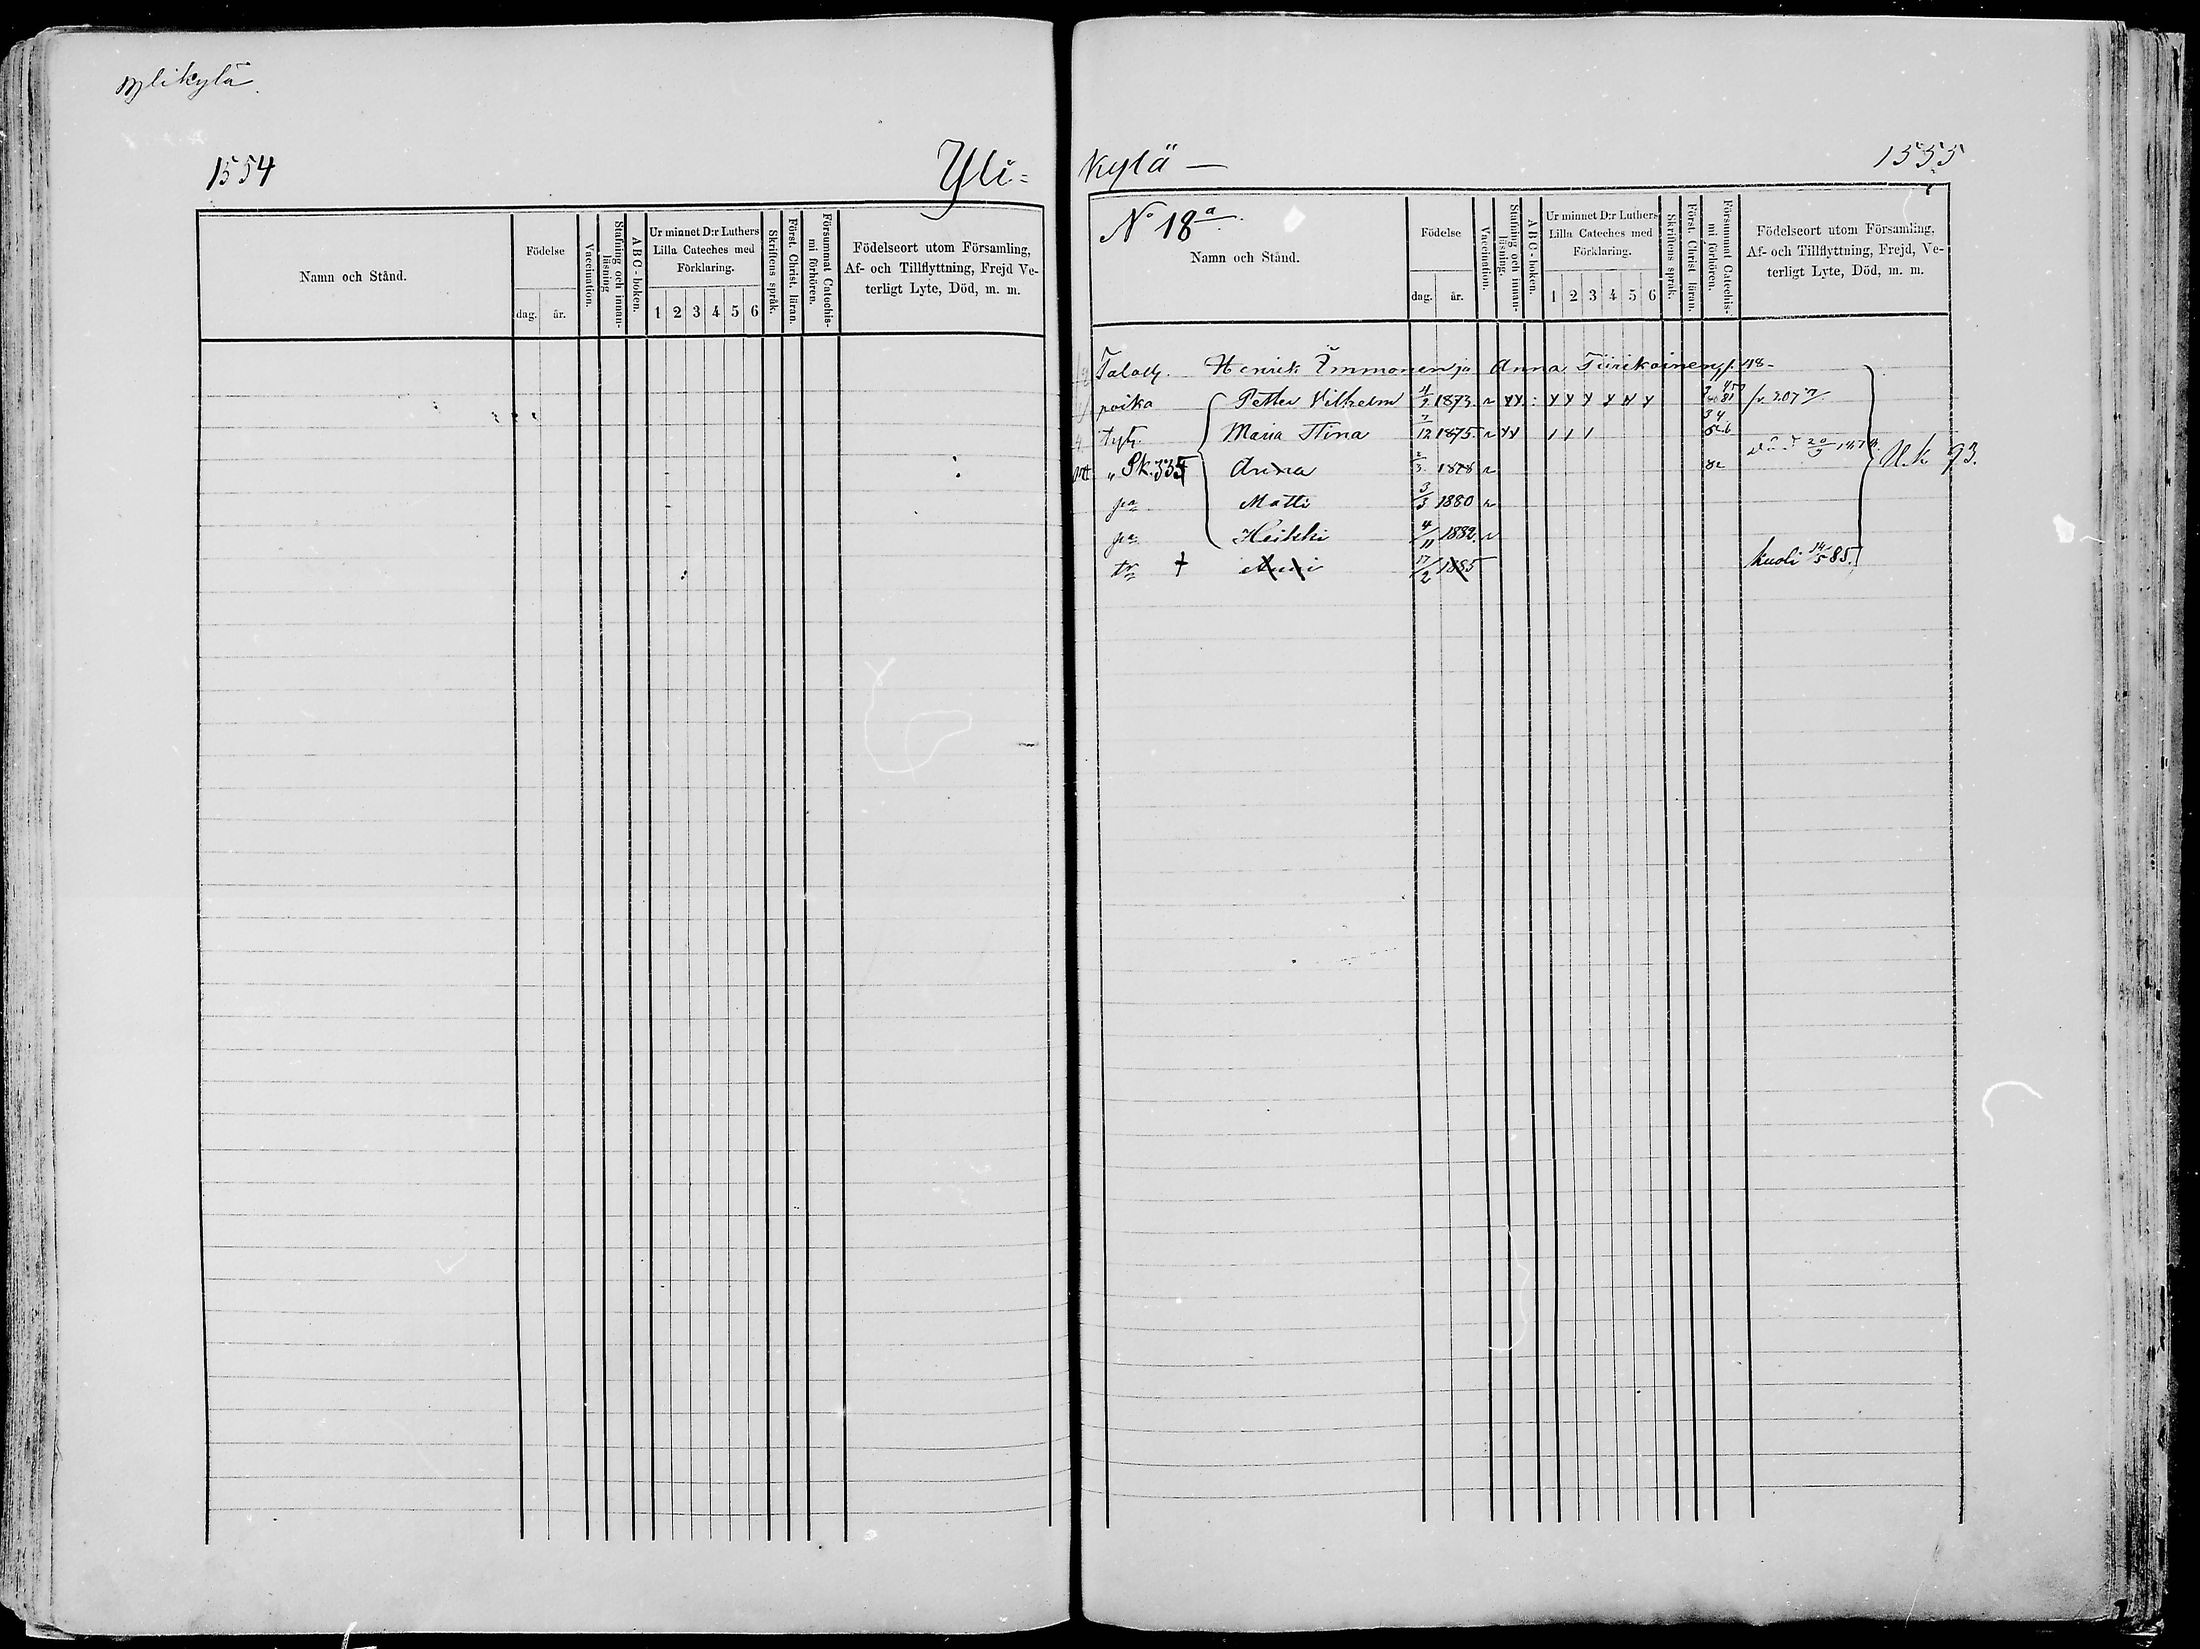 Ylikylä.
1554
Yli=
Namn och Stånd.
Födelse
dag. år.
Vaccination.
Stafning och innan-
läsning
ABC-boken.
Ur minnet D:r Luthers
Lilla Cateches med
Förklaring.
1 2 3 4 5 6
Skriftens språk.
Först. Christ. läran.
Försummat Catechis-
mi förhören.
Födelseort utom Församling,
Af- och Tillflyttning, Frejd Ve-
terligt Lyte, Död, m. m.
kylä —
1555
No 18 a.
Namn och Stånd.
Födelse
dag. år.
Vaccination.
Stafning och innan-
läsning.
ABC-boken.
Ur minnet D:r Luthers
Lilla Cateches med
Förklaring.
1 2 3 4 5 6
Skriftens språk.
Först. Christ läran.
Försummat Catechis-
mi förhören.
Födelseort utom Församling,
Af- och Tillflyttning, Frejd, Ve-
terligt Lyte, Död, m. m.
Henrik Immonen ja Anna Tiirikainen, p. 118-
poika Petter Vilhelm 1873 v xx x x x x x x
tytt. Maria Stina 7/12 1875 v xx / / /
" Sk. 335 Anna 2/3 1878 v 82
pa Matti 3/3 1880 v
pa Heikki 4/11 1882 v
tr + Anni 17/2 1885 kuoli 14/5 85.
U.k. 93.